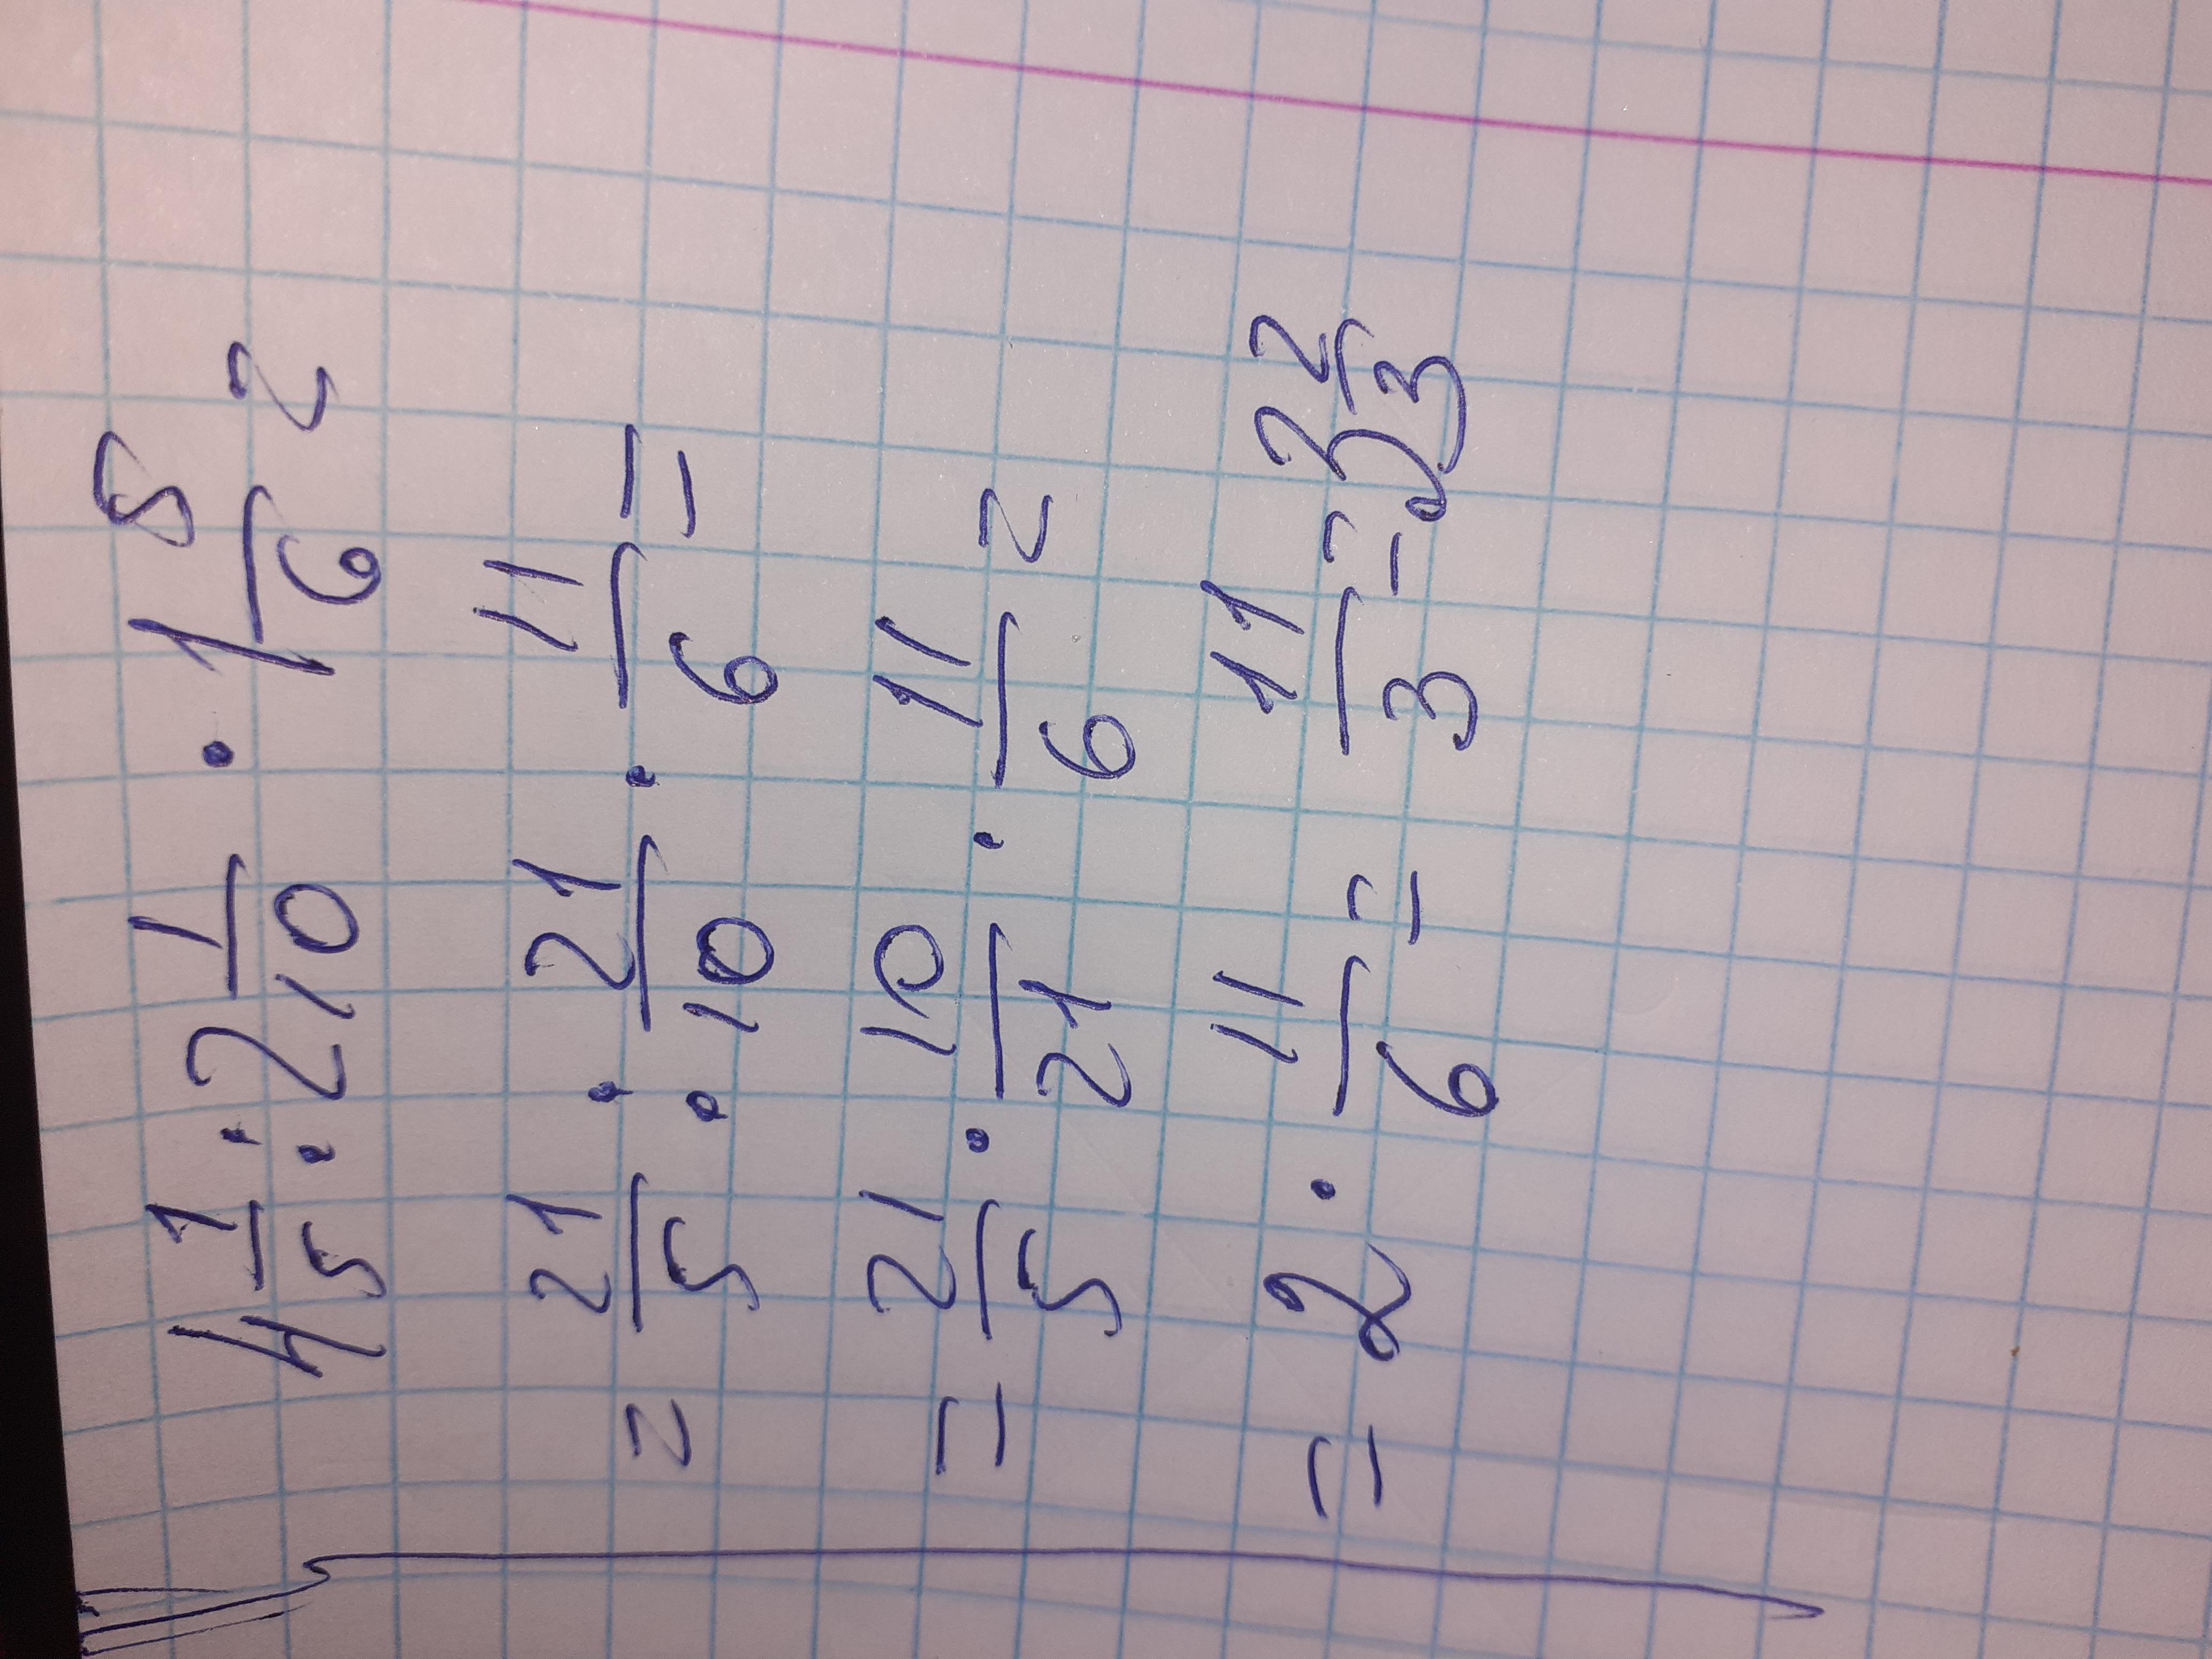 4 1/5 : 2 1/10 · 1 5/6 =
= 21/5 : 21/10 · 11/6 =
= 21/5 · 10/21 · 11/6 =
= 2 · 11/6 = 11/3 = 3 2/3